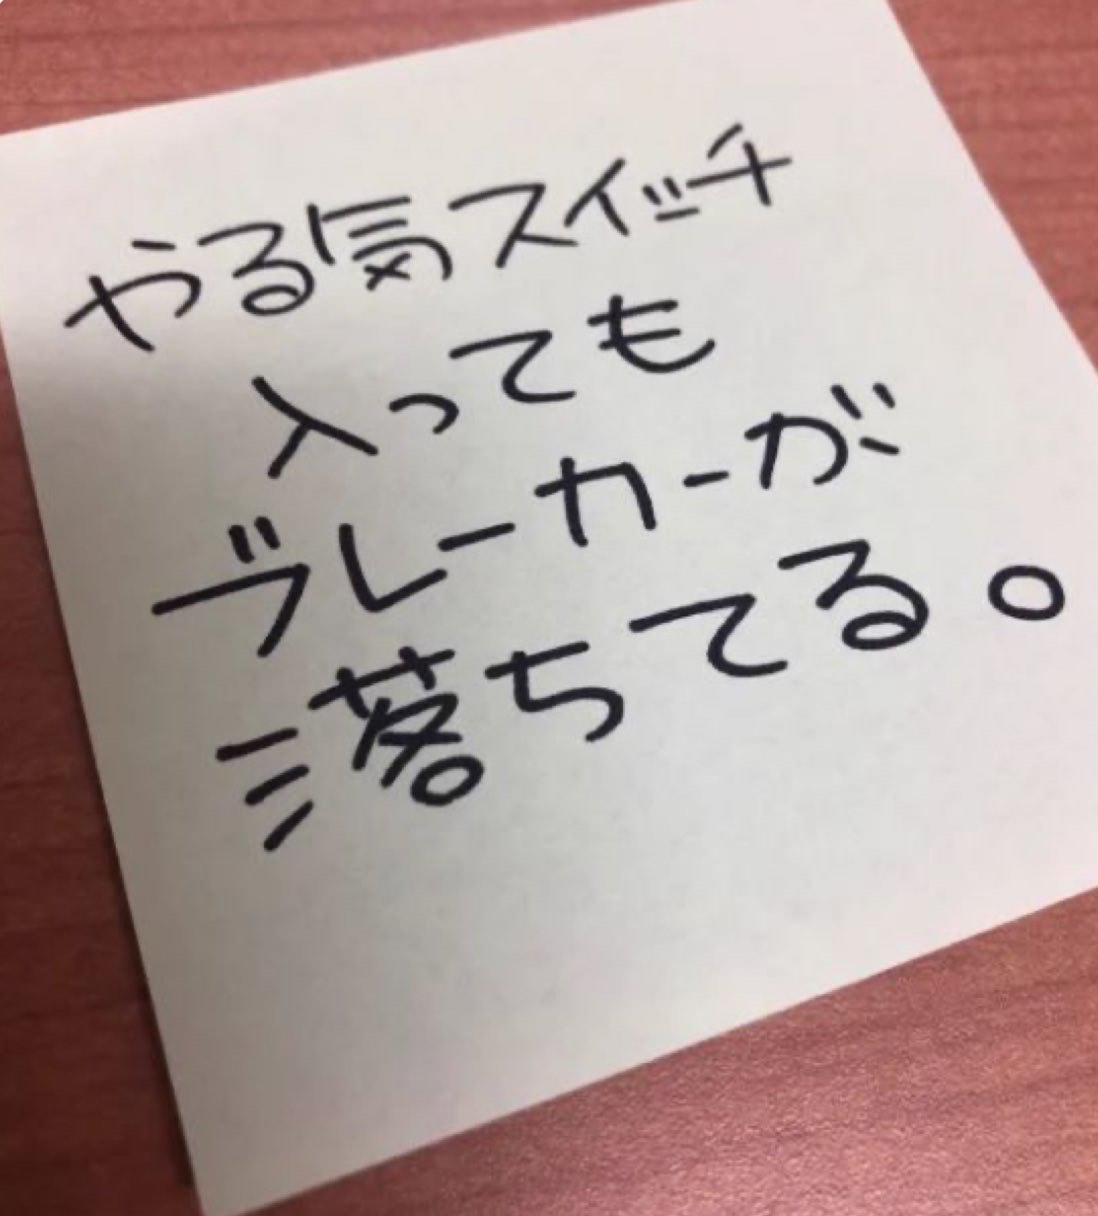 やる気スイッチ
入っても
ブレーカーが
落ちてる。